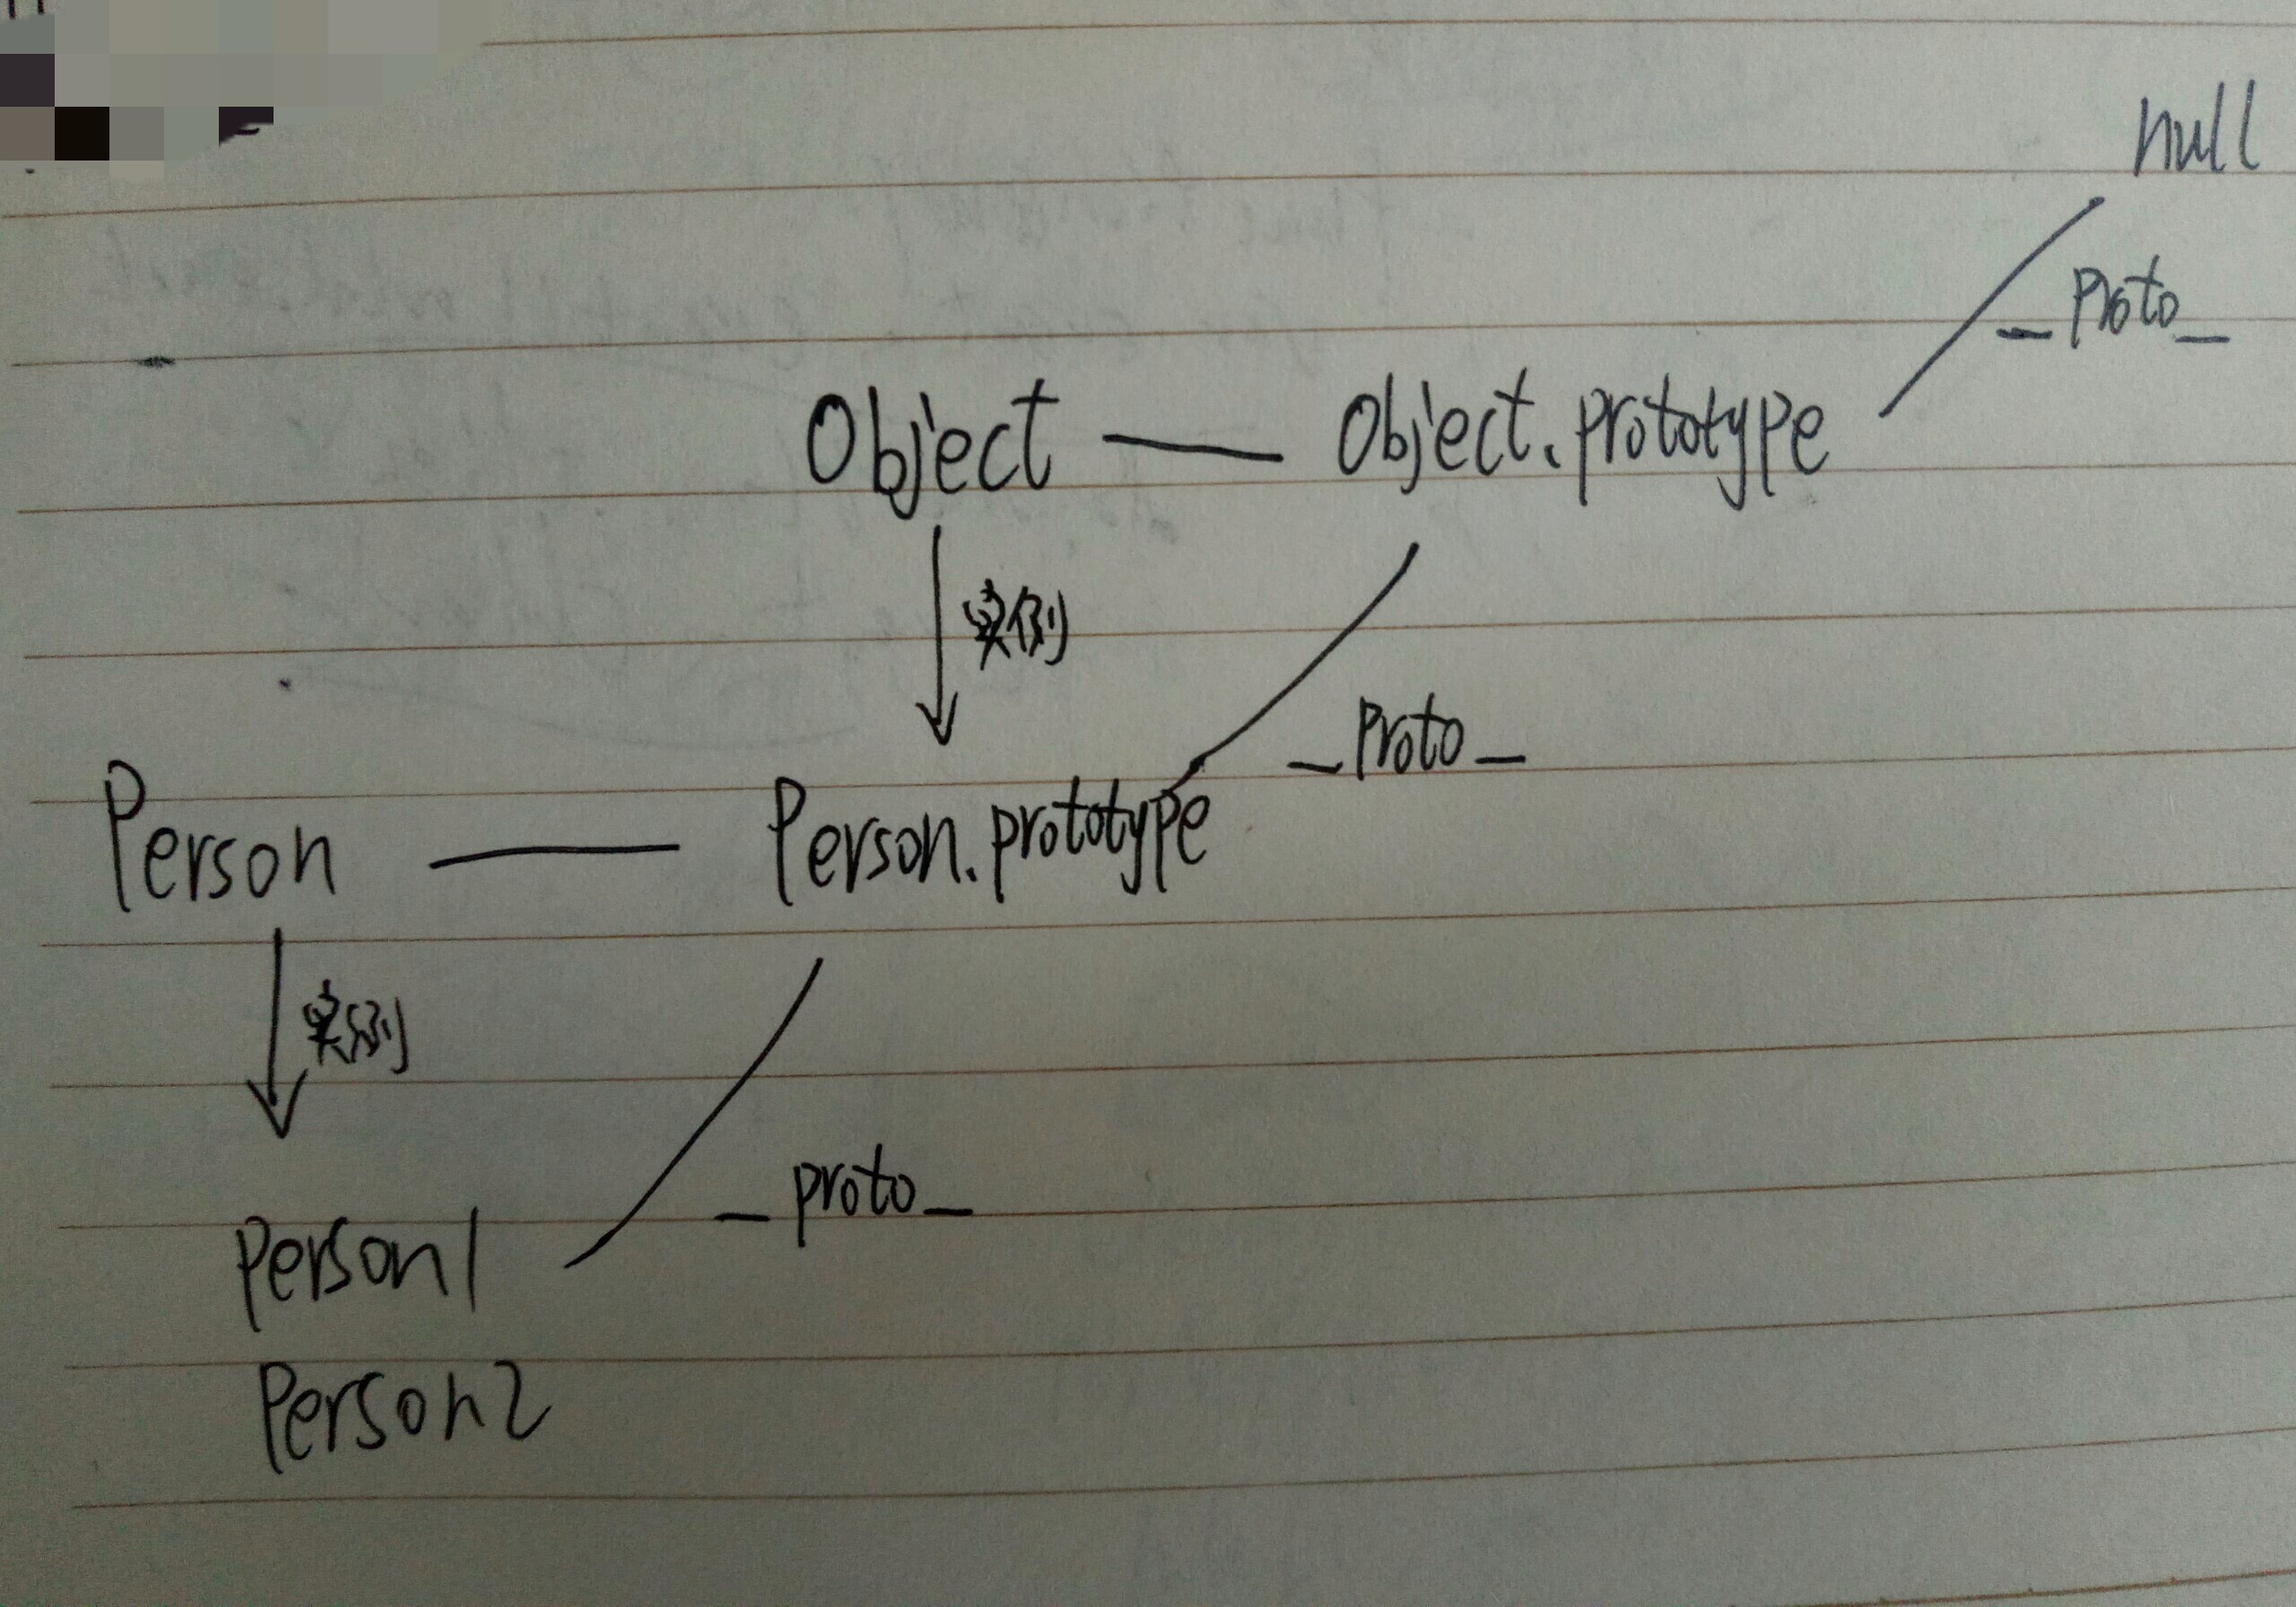 null
_Proto_
Object — Object.prototype
实例
_Proto_
Person — Person.prototype
实例
_proto_
Person1
Person2